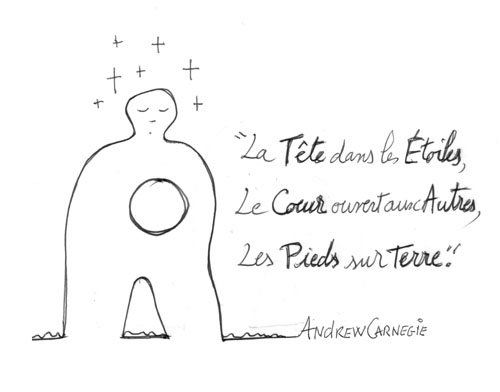 "La Tête dans les Étoiles,
Le Cœur ouvert aux Autres,
Les Pieds sur Terre."
ANDREW CARNEGIE